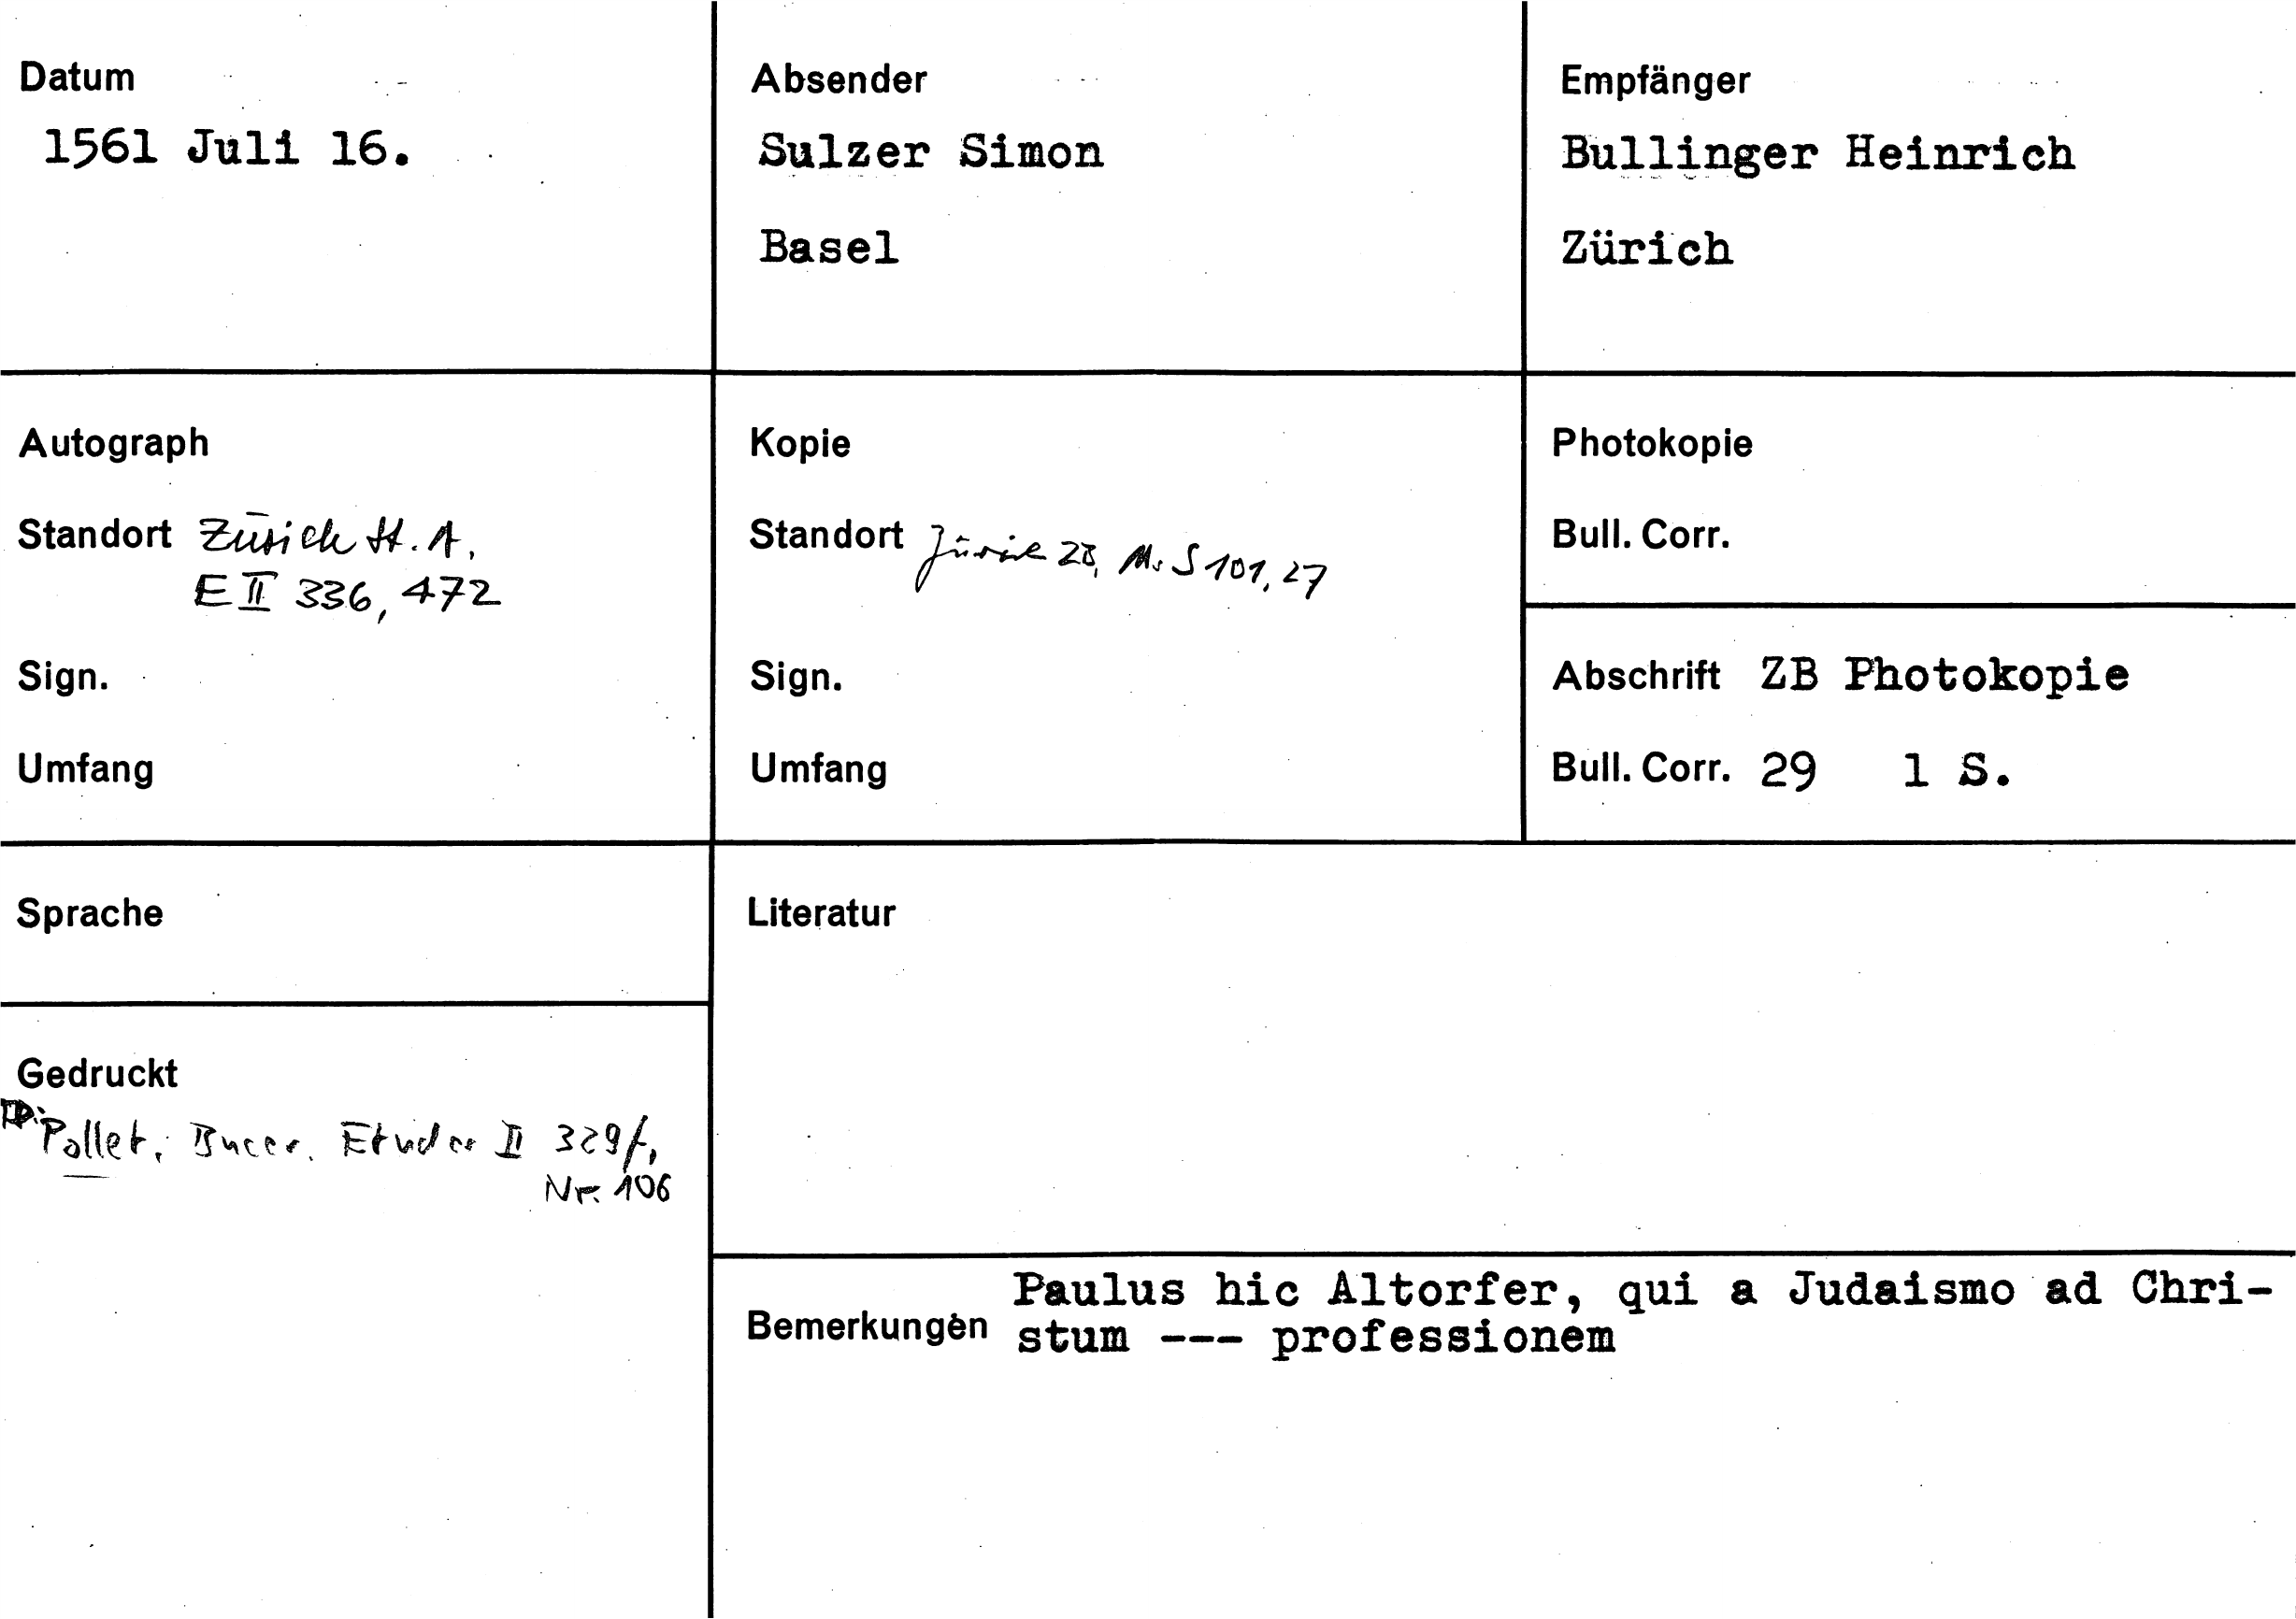 Datum
1561 Juli 16.
Absender
Sulzer Simon
Basel
Empfänger
Bullinger Heinrich
Zürich
Autograph
Standort Zürich St. A,
E II 336, 472
Sign.
Umfang
Kopie
Standort Zürich ZB, Ms S 101, 27
Sign.
Umfang
Photokopie
Bull. Corr.
Abschrift ZB Photokopie
Bull. Corr. 29 1 S.
Sprache
Literatur
Gedruckt
Pollet, Bucer. Etudes II 329f,
Nr. 106
Bemerkungen Paulus hic Altorfer, qui a Judaismo ad Chri-
stum --- professionem